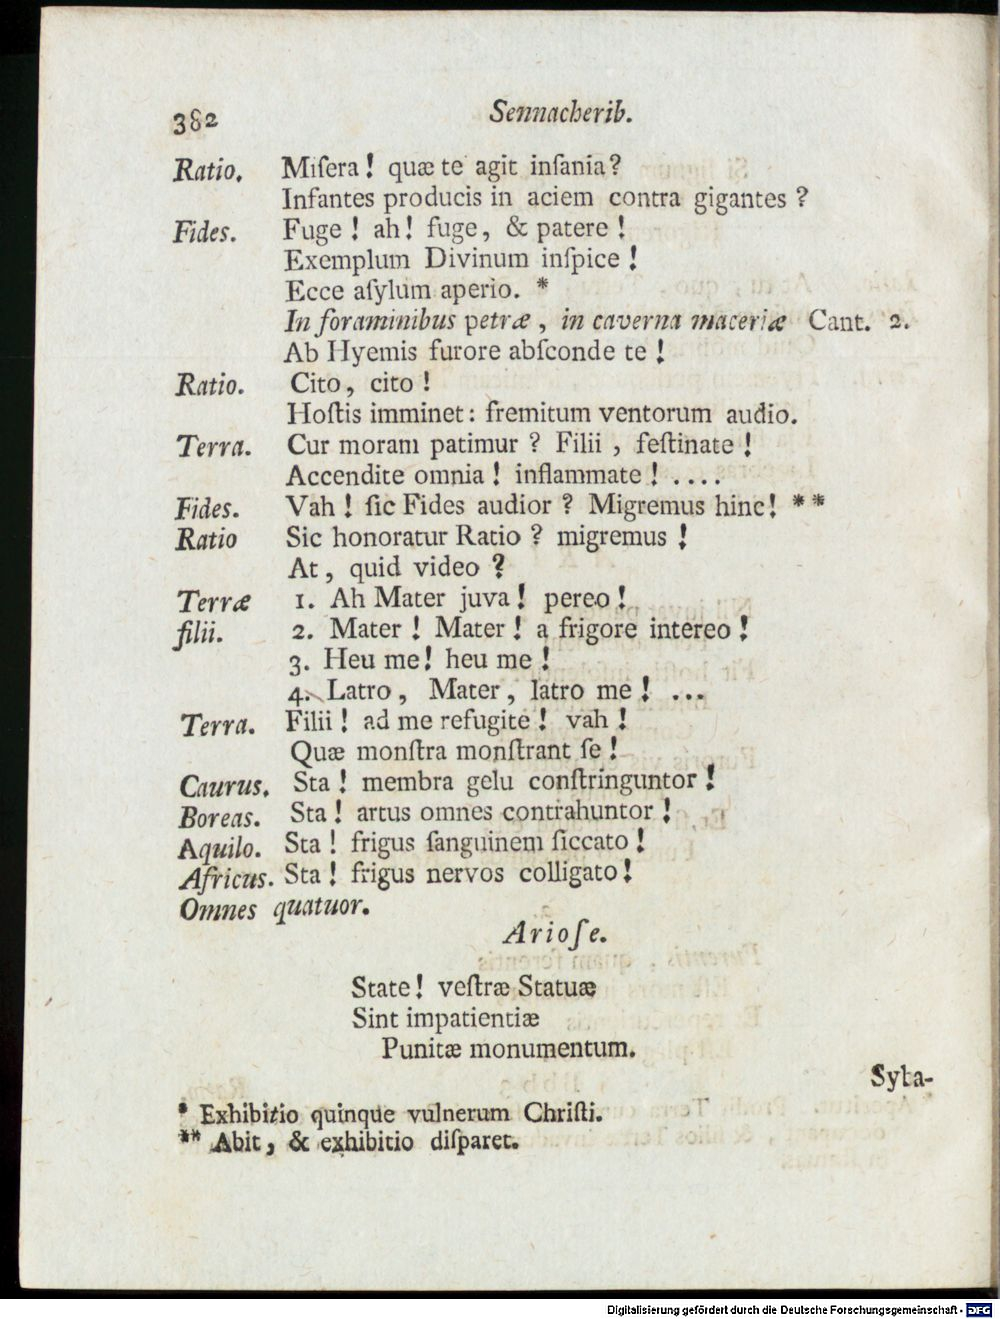 382 Sennacherib.
Ratio. Miſera! quæ te agit inſania?
Infantes producis in aciem contra gigantes?
Fides. Fuge! ah! fuge, & patere!
Exemplum Divinum inſpice!
Ecce aſylum aperio. *
In foraminibus petræ, in caverna maceriæ Cant. 2.
Ab Hyemis furore abſconde te!
Ratio. Cito, cito!
Hoſtis imminet: fremitum ventorum audio.
Terra. Cur moram patimur? Filii, feſtinate!
Accendite omnia! inflammate! ....
Fides. Vah! ſic Fides audior? Migremus hinc! **
Ratio Sic honoratur Ratio? migremus!
At, quid video?
Terræ 1. Ah Mater juva! pereo!
filii. 2. Mater! Mater! a frigore intereo!
3. Heu me! heu me!
4. Latro, Mater, latro me! ...
Terra. Filii! ad me refugite! vah!
Quæ monſtra monſtrant ſe!
Caurus. Sta! membra gelu conſtringuntor!
Boreas. Sta! artus omnes contrahuntor!
Aquilo. Sta! frigus ſanguinem ſiccato!
Africus. Sta! frigus nervos colligato!
Omnes quatuor.
Arioſe.
State! veſtræ Statuæ
Sint impatientiæ
Punitæ monumentum.
Syba-
* Exhibitio quinque vulnerum Chriſti.
** Abit, & exhibitio diſparet.
Digitalisierung gefördert durch die Deutsche Forschungsgemeinschaft - DFG